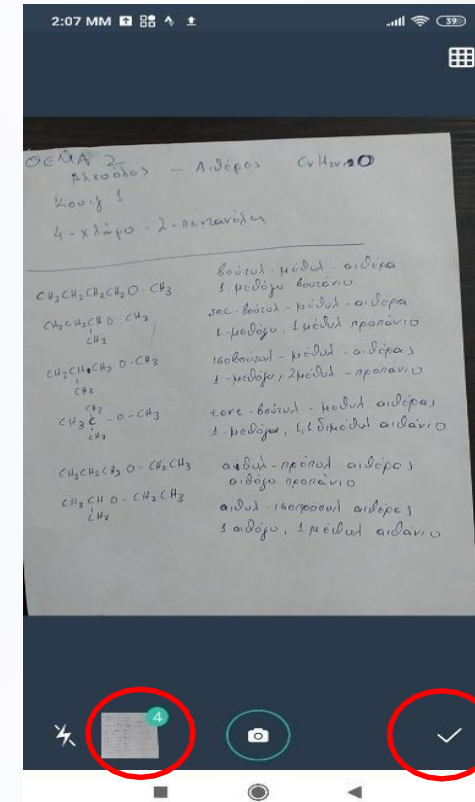 2:07 MM
39
ΘΕΜΑ 2
Αλκοόλες - Αιθέρες CνH2ν+2O
Κουιζ 1
4 - χλώρο - 2 - πεντανόλη
CH3CH2CH2CH2O - CH3
βούτυλ - μέθυλ - αιθέρα
1 - μεθόξυ βουτάνιο
CH3CH2CHO - CH3
CH3
sec - βούτυλ - μέθυλ - αιθέρα
1 - μεθόξυ, 1 μέθυλ προπάνιο
CH3CHCH2O - CH3
CH3
ισοβούτυλ - μέθυλ - αιθέρας
1 - μεθόξυ, 2 μέθυλ - προπάνιο
CH3
CH3C - O - CH3
CH3
τερτ - βούτυλ - μέθυλ αιθέρας
1 - μεθόξυ, 1,1 διμέθυλ αιθάνιο
CH3CH2CH2O - CH2CH3
αιθυλ - πρόπυλ αιθέρας
αιθόξυ προπάνιο
CH3CHO - CH2CH3
CH3
αιθυλ - ισοπρόπυλ αιθέρας
1 αιθόξυ, 1 μέθυλ αιθάνιο
4